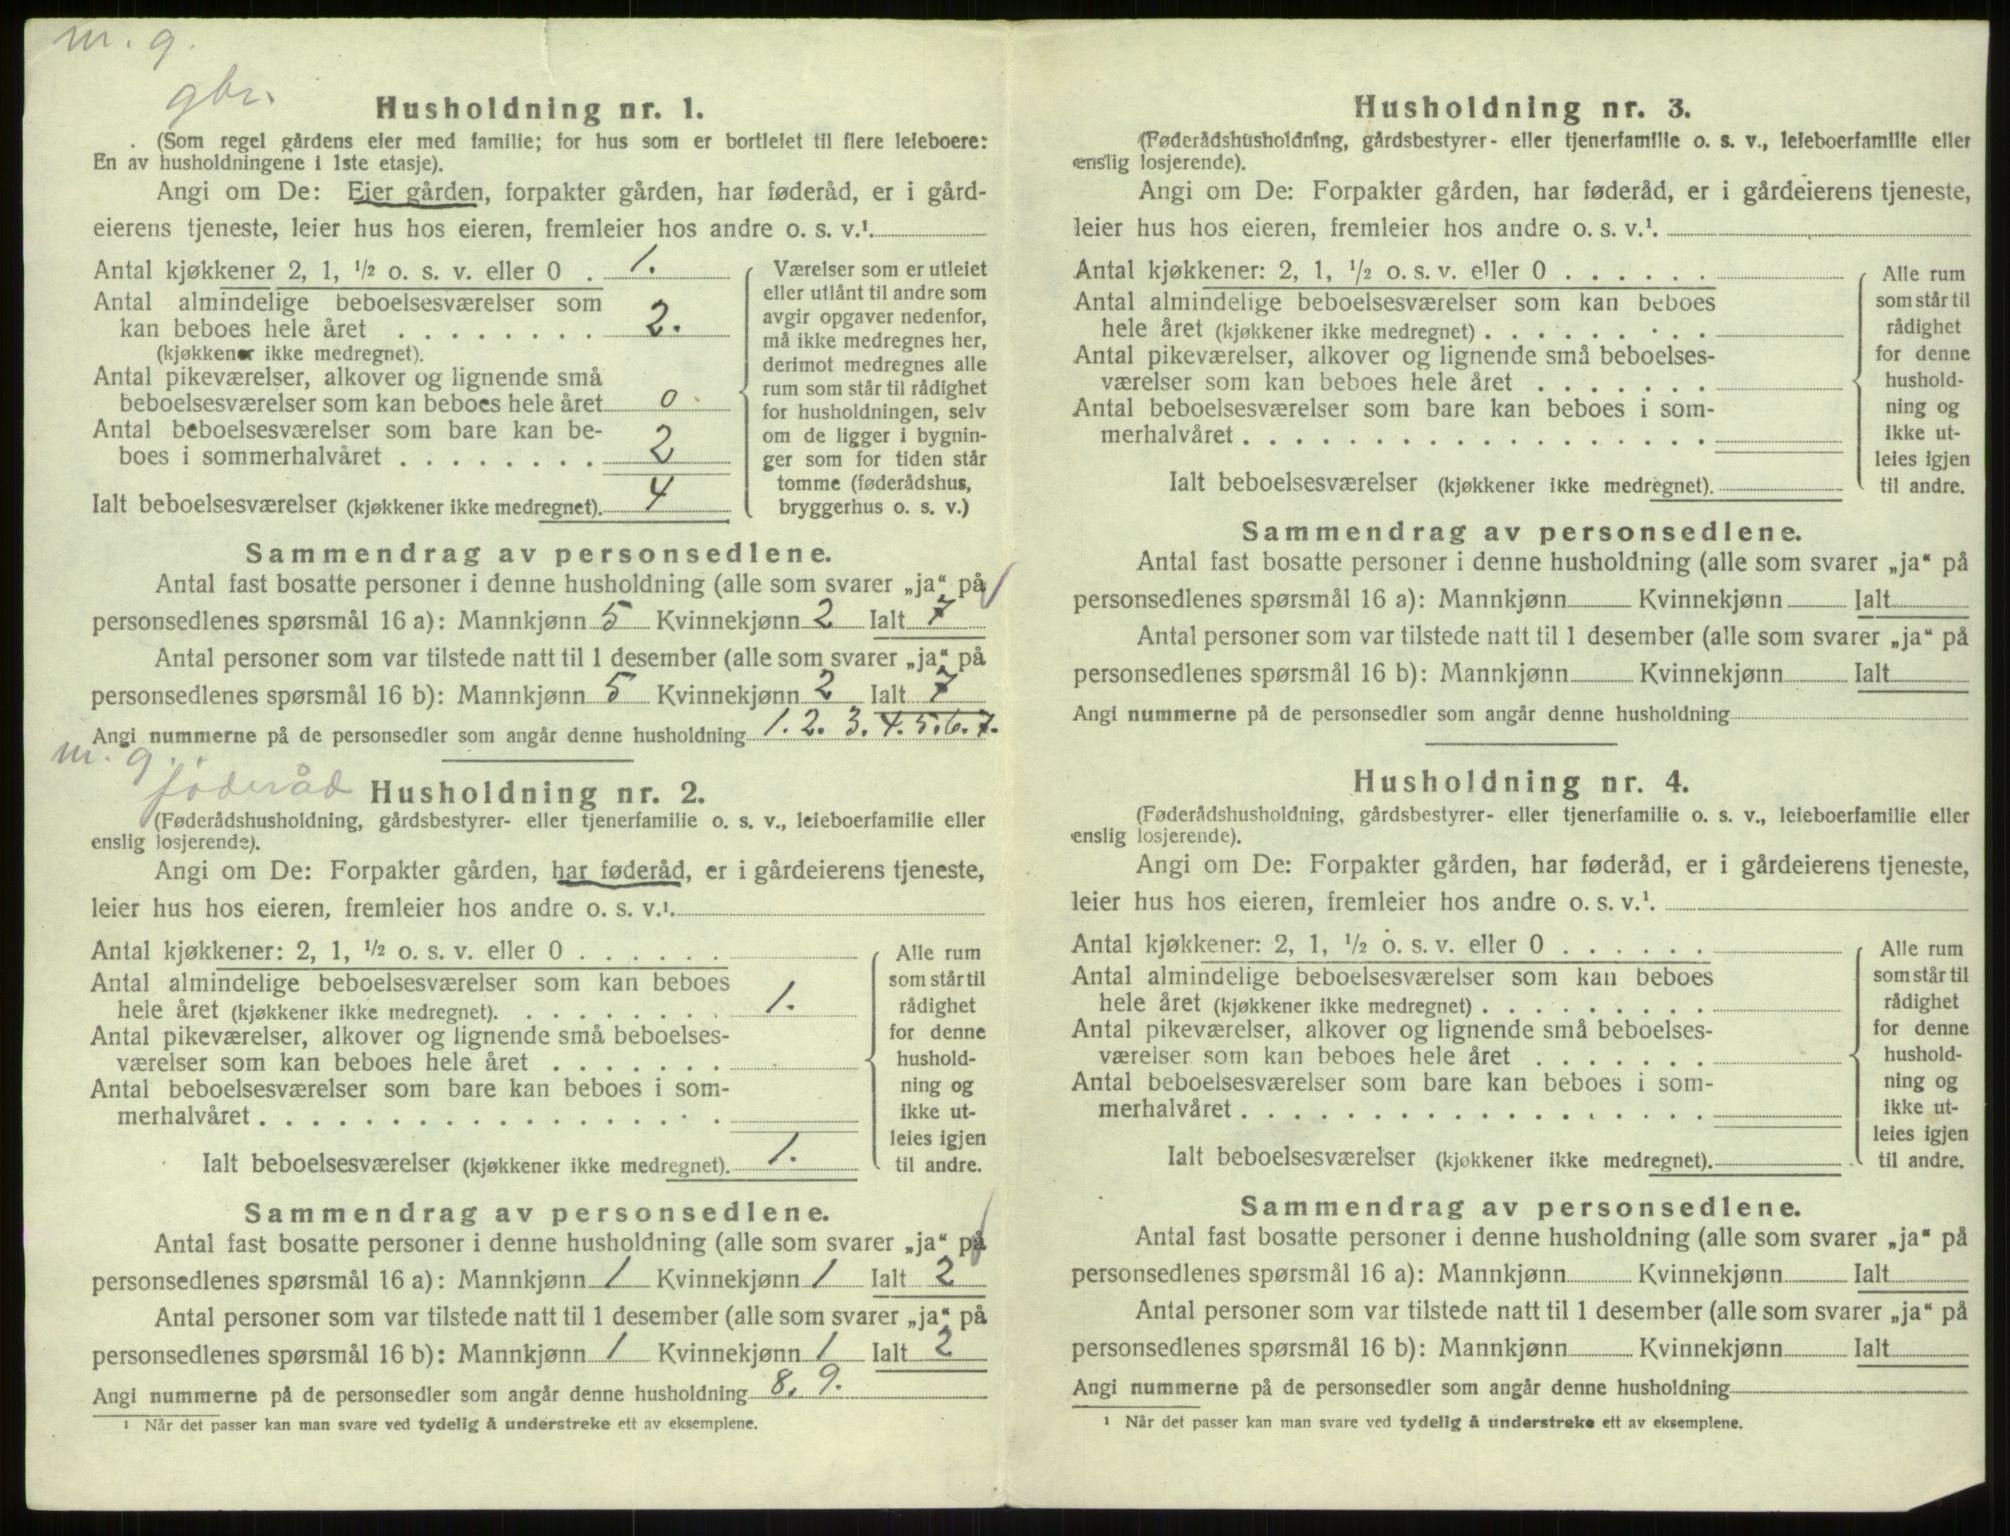 m. g.
gbr.
Husholdning nr. 1.
(Som regel gårdens eier med familie; for hus som er bortleiet til flere leieboere:
En av husholdningene i 1ste etasje).
Angi om De: Eier gården, forpakter gården, har føderåd, er i gård-
eierens tjeneste, leier hus hos eieren, fremleier hos andre o. s. v.¹.
Antal kjøkkener 2, 1, ½ o. s. v. eller 0 . 1.
Antal almindelige beboelsesværelser som
kan beboes hele året . . . . . . . . 2.
(kjøkkener ikke medregnet).
Antal pikeværelser, alkover og lignende små
beboelsesværelser som kan beboes hele året 0
Antal beboelsesværelser som bare kan be-
boes i sommerhalvåret . . . . . . . . 2
Ialt beboelsesværelser (kjøkkener ikke medregnet). 4
Værelser som er utleiet
eller utlånt til andre som
avgir opgaver nedenfor,
må ikke medregnes her,
derimot medregnes alle
rum som står til rådighet
for husholdningen, selv
om de ligger i bygnin-
ger som for tiden står
tomme (føderådshus,
bryggerhus o. s. v.)
Sammendrag av personsedlene.
Antal fast bosatte personer i denne husholdning (alle som svarer „ja“ på
personsedlenes spørsmål 16 a): Mannkjønn 5 Kvinnekjønn 2 Ialt 7
Antal personer som var tilstede natt til 1 desember (alle som svarer „ja“ på
personsedlenes spørsmål 16 b): Mannkjønn 5 Kvinnekjønn 2 Ialt 7
Angi nummerne på de personsedler som angår denne husholdning 1. 2. 3. 4. 5. 6. 7.
m. g.
føderåd
Husholdning nr. 2.
(Føderådshusholdning, gårdsbestyrer- eller tjenerfamilie o. s. v., leieboerfamilie eller
enslig losjerende).
Angi om De: Forpakter gården, har føderåd, er i gårdeierens tjeneste,
leier hus hos eieren, fremleier hos andre o. s. v.¹.
Antal kjøkkener: 2, 1, ½ o. s. v. eller 0 . . . . . .
Antal almindelige beboelsesværelser som kan beboes
hele året (kjøkkener ikke medregnet). . . . . . . . . 1.
Antal pikeværelser, alkover og lignende små beboelses-
værelser som kan beboes hele året . . . . . . .
Antal beboelsesværelser som bare kan beboes i som-
merhalvåret . . . . . . . . . . . . . . . . . .
Ialt beboelsesværelser (kjøkkener ikke medregnet). 1.
Alle rum
som står til
rådighet
for denne
hushold-
ning og
ikke ut-
leies igjen
til andre.
Sammendrag av personsedlene.
Antal fast bosatte personer i denne husholdning (alle som svarer „ja“ på
personsedlenes spørsmål 16 a): Mannkjønn 1 Kvinnekjønn 1 Ialt 2
Antal personer som var tilstede natt til 1 desember (alle som svarer „ja“ på
personsedlenes spørsmål 16 b): Mannkjønn 1 Kvinnekjønn 1 Ialt 2
Angi nummerne på de personsedler som angår denne husholdning 8, 9.
¹ Når det passer kan man svare ved tydelig å understreke ett av eksemplene.
Husholdning nr. 3.
(Føderådshusholdning, gårdsbestyrer- eller tjenerfamilie o. s. v., leieboerfamilie eller
enslig losjerende).
Angi om De: Forpakter gården, har føderåd, er i gårdeierens tjeneste,
leier hus hos eieren, fremleier hos andre o. s. v.¹.
Antal kjøkkener: 2, 1, ½ o. s. v. eller 0 . . . . . .
Antal almindelige beboelsesværelser som kan beboes
hele året (kjøkkener ikke medregnet) . . . . . . . . .
Antal pikeværelser, alkover og lignende små beboelses-
værelser som kan beboes hele året . . . . . . .
Antal beboelsesværelser som bare kan beboes i som-
merhalvåret . . . . . . . . . . . . . . . . . .
Ialt beboelsesværelser (kjøkkener ikke medregnet).
Alle rum
som står til
rådighet
for denne
hushold-
ning og
ikke ut-
leies igjen
til andre.
Sammendrag av personsedlene.
Antal fast bosatte personer i denne husholdning (alle som svarer „ja“ på
personsedlenes spørsmål 16 a): Mannkjønn Kvinnekjønn Ialt
Antal personer som var tilstede natt til 1 desember (alle som svarer „ja“ på
personsedlenes spørsmål 16 b): Mannkjønn Kvinnekjønn Ialt
Angi nummerne på de personsedler som angår denne husholdning
Husholdning nr. 4.
(Føderådshusholdning, gårdsbestyrer- eller tjenerfamilie o. s. v., leieboerfamilie eller
enslig losjerende).
Angi om De: Forpakter gården, har føderåd, er i gårdeierens tjeneste,
leier hus hos eieren, fremleier hos andre o. s. v.¹.
Antal kjøkkener: 2, 1, ½ o. s. v. eller 0 . . . . . .
Antal almindelige beboelsesværelser som kan beboes
hele året (kjøkkener ikke medregnet) . . . . . . . . .
Antal pikeværelser, alkover og lignende små beboelses-
værelser som kan beboes hele året . . . . . . .
Antal beboelsesværelser som bare kan beboes i som-
merhalvåret . . . . . . . . . . . . . . . . . .
Ialt beboelsesværelser (kjøkkener ikke medregnet).
Alle rum
som står til
rådighet
for denne
hushold-
ning og
ikke ut-
leies igjen
til andre.
Sammendrag av personsedlene.
Antal fast bosatte personer i denne husholdning (alle som svarer „ja“ på
personsedlenes spørsmål 16 a): Mannkjønn Kvinnekjønn Ialt
Antal personer som var tilstede natt til 1 desember (alle som svarer „ja“ på
personsedlenes spørsmål 16 b): Mannkjønn Kvinnekjønn Ialt
Angi nummerne på de personsedler som angår denne husholdning
¹ Når det passer kan man svare ved tydelig å understreke ett av eksemplene.